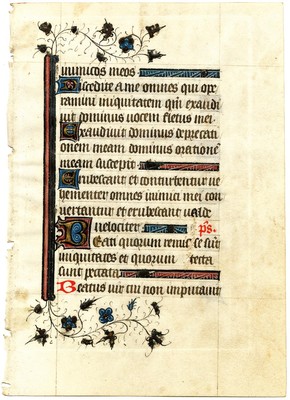 inimicos meos
Discedite a me omnes qui ope
ramini iniquitatem qm exaudi
uit dominus uocem fletus mei
Exaudiuit dominus deprecati
onem meam dominus oratione
meam suscepit
Erubescant et conturbentur ue
hementer omnes inimici mei con
uertantur et erubescant ualde
uelociter ps
Beati quorum remisse sunt
iniquitates et quorum tecta
sunt peccata
Beatus uir cui non imputauit